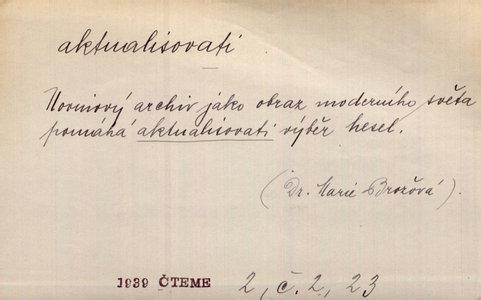 aktualisovati
Novinový archiv jako obraz moderního světa
pomáhá aktualisovati výběr hesel.
(Dr. Marie Brožová).
1939 ČTEME 2, č. 2, 23